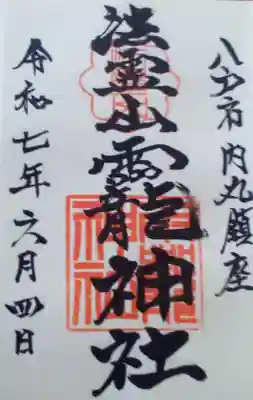 八戸市内丸鎮座
法霊山龗神社
令和七年六月四日